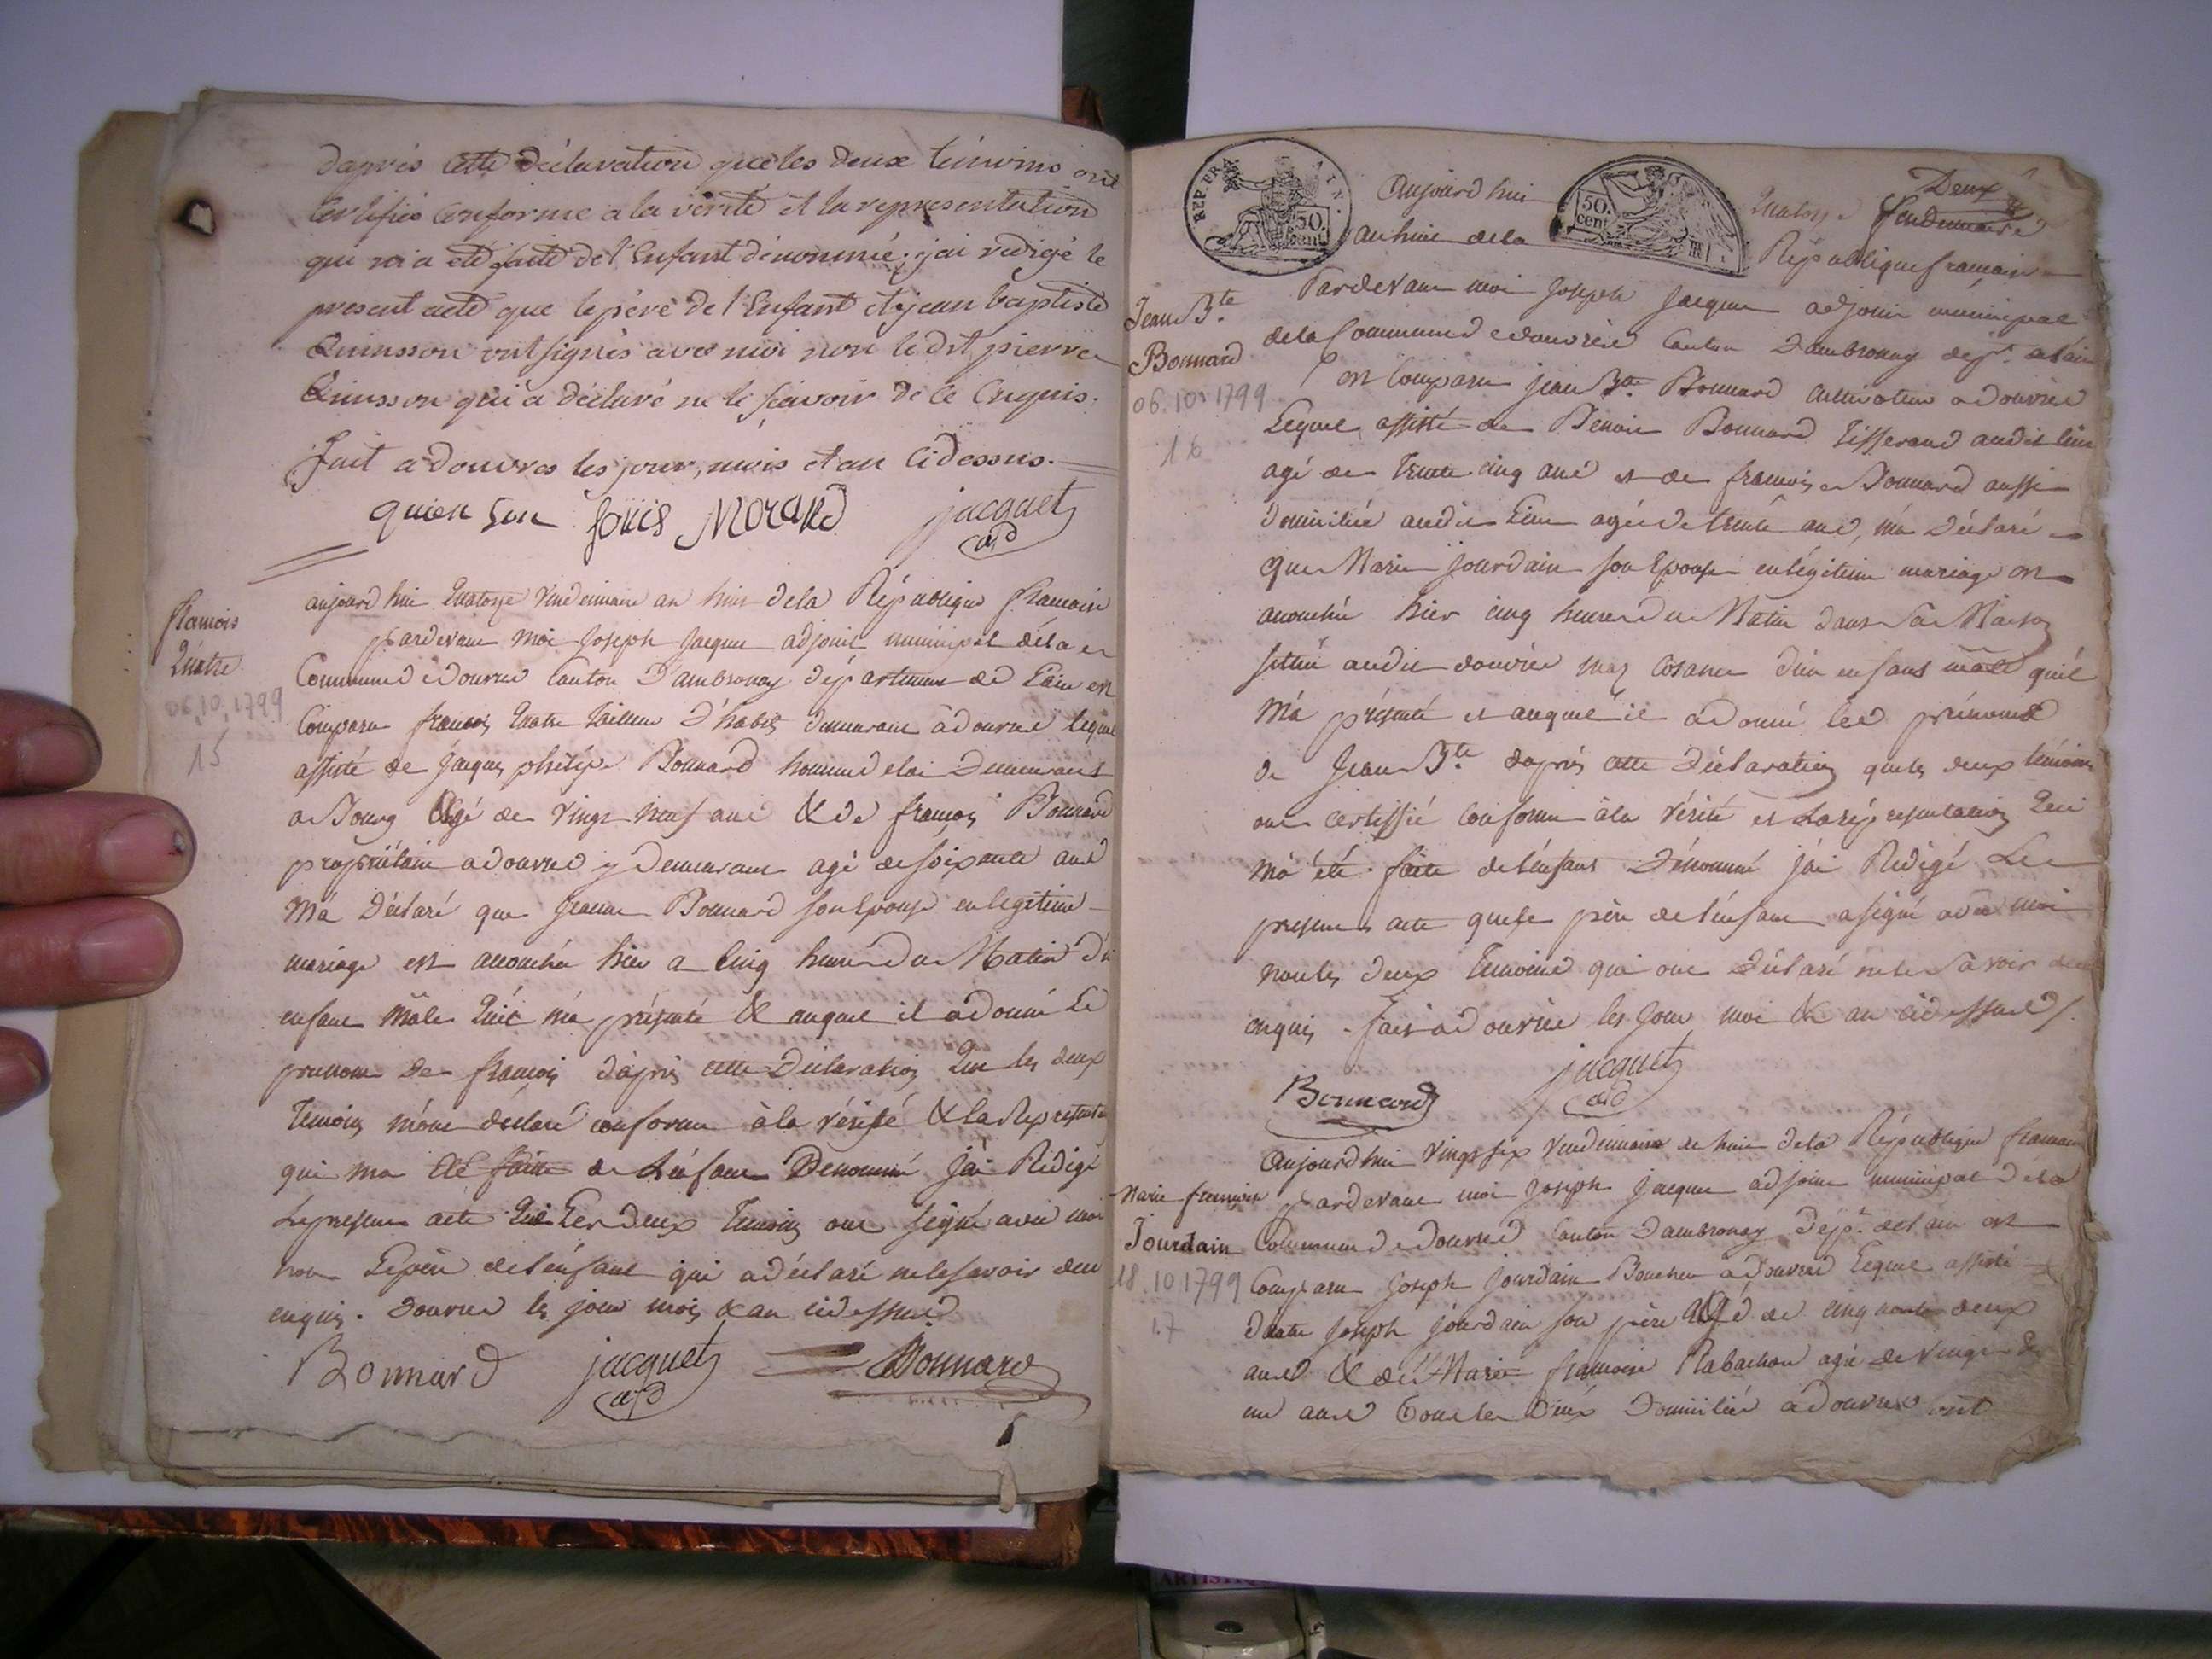 d'après cette déclaration que les deux témoins ont
certifiés conforme a la vérité et la représentation
qui m'a eté faite de l'Enfant dénommé; j'ai rédigé le
present acte que le père de l'Enfant et jean baptiste
Quinsson ont signés avec moi non le dit pierre
Quinsson qui a déclaré ne le sçavoir de ce Enquis.
fait a douvres les jour, mois et an cidessus.
quien son louis MORAND jacquet
adj
francois
Quatre
06.10.1799
15
aujourd'hui Quatorze vendemiaire an huit dela République francaise
pardevant moi Joseph Jacquet adjoint municipal dela
Commune de douvres Canton D'ambronay département de L'ain est
Comparu francois Quatre tailleur D'habits demeurant a douvres lequel
assisté de Jacques philipe Bonnard homme de loi Demeurant
a Bourg Agé de vingt neuf ans & de françois Bonnard
propriétaire a douvres y Demeurant agé de soixante ans
M'a Déclaré que Jeanne Bonnard son Epouse en legitime
mariage est accouchée hier a Cinq heures du Matin d'un
enfant mâle Qu'il m'a présenté & auquel il a donné Le
prenom de françois d'après cette Déclaration Que les deux
Temoins m'ont déclaré conforme à la vérité & la Represent
qui ma été faite de L'enfant Denommé J'ai Rédigé
Le present acte Que Les deux Temoins ont signé avec moi
non Le père de l'enfant qui a déclaré ne le savoir de ce
enquis. Douvres les jour mois & an cidessus
Bonnard jacquet Bonnard
adj
REP. FRA
50.
cent.
50.
cent.
Deux
Aujourd'hui Quatorze Vendemiaire
an huit dela République francaise
Jean B.te
Bonnard
06.10.1799
16
Pardevant moi Joseph Jacquet adjoint municipal
dela Commune de douvres Canton D'ambronay dep.t de l'ain
Est Comparu jean B.te Bonnard cultivateur a douvres
Lequel assisté de Benoit Bonnard Tisserand audit lieu
agé de trente cinq ans et de francoise Bonnard aussi
domiciliée audit Lieu agée de trente ans, m'a Déclaré
que Marie jourdain son Epouse en légitime mariage est
accouchée hier cinq heures du Matin dans sa Maison
située audit douvres d'un enfant mâle qu'il
M'a présenté et auquel il a donné les prénoms
de Jean B.te d'après cette Déclaration que les deux témoins
ont certiffié conforme à la vérité et La représentation Qui
m'a été faite de l'enfant Dénommé j'ai Redigé Le
present acte que le père de l'enfant a signé avec moi
non les deux Temoins qui ont Déclaré ne le Savoir de ce
enquis. fait a douvres les jour moi & an cidessus
Bonnard jacquet
adj
Marie francoise
Jourdain
18.10.1799
17
Aujourd'hui Vingt six Vendemiaire de huit dela République francaise
Pardevant moi Joseph Jacquet adjoint municipal dela
Commune de Douvres Canton D'ambronay Dep.t del ain est
Comparu Joseph Jourdain Boucher a Douvres Lequel assisté
d'autre Joseph jourdain son père Agé de cinquante deux
ans & de Marie francoise Rabachon agée de Vingt
un ans Tous les Deux Domiciliés a douvres ont